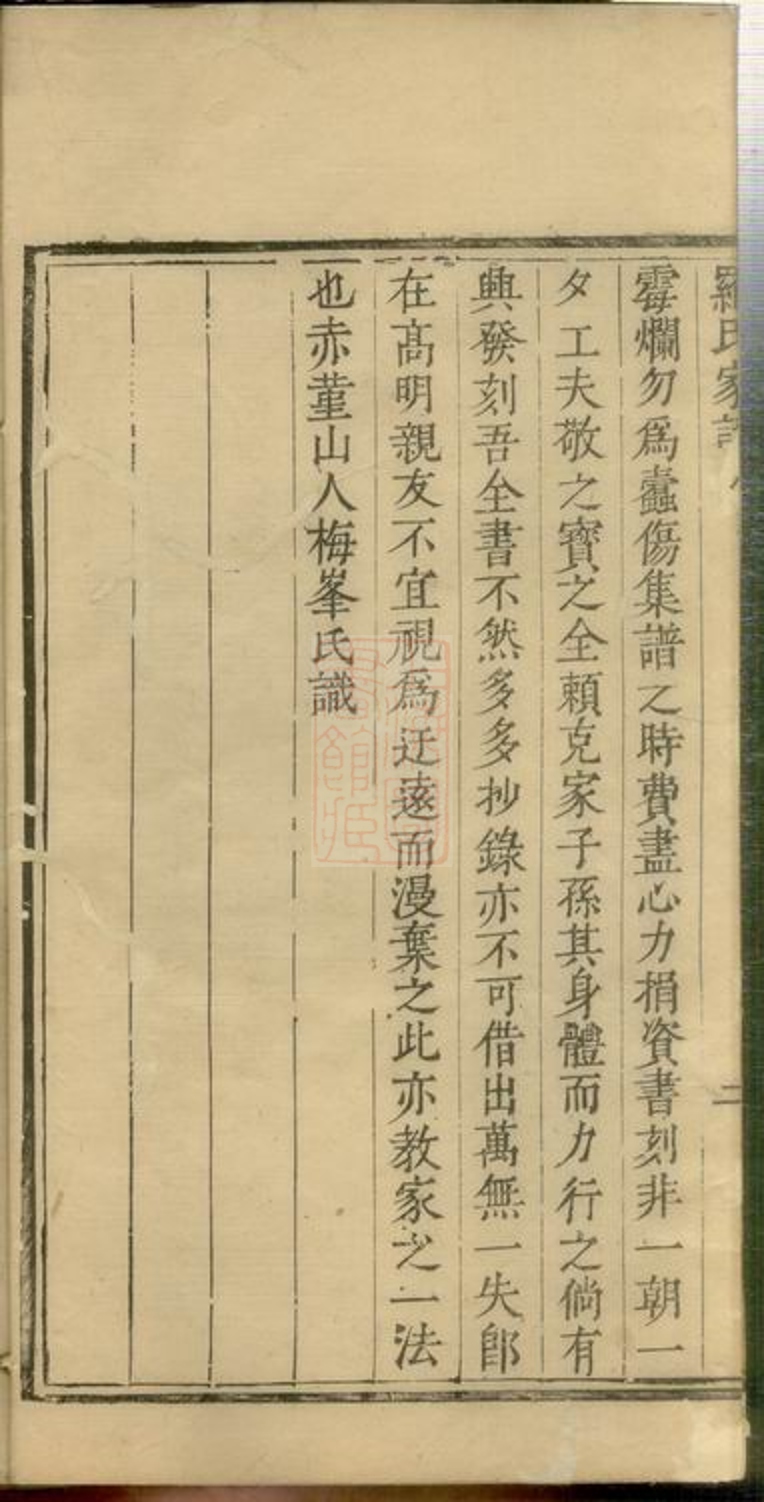 羅氏家譜
二
霉爛勿爲蠹傷集譜之時費盡心力捐資書刻非一朝一
夕工夫敬之寶之全頼克家子孫其身體而力行之倘有
興發刻吾全書不然多多抄錄亦不可借出萬無一失卽
在髙明親友不宜視爲迂遠而漫棄之此亦教家之一法
也赤堇山人梅峯氏識